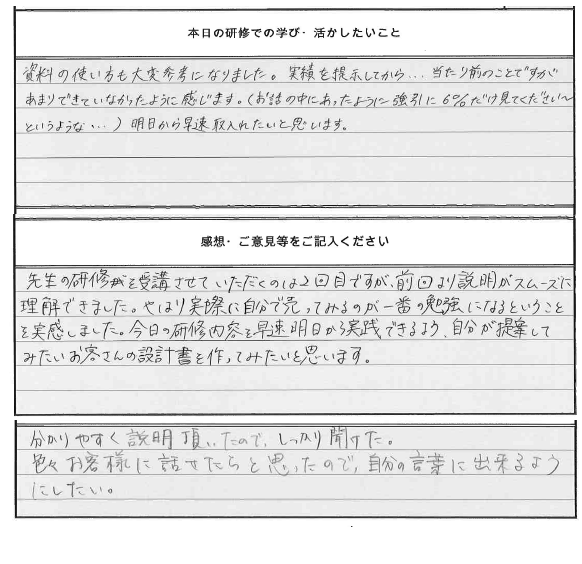 本日の研修での学び・活かしたいこと
資料の使い方も大変参考になりました。実績を提示してから…当たり前のことですが
あまりできていなかったように感じます。(お話の中にあったように強引に6%だけ見てください〜
というような…)明日から早速取入れたいと思います。
感想・ご意見等をご記入ください
先生の研修を受講させていただくのは2回目ですが、前回より説明がスムーズに
理解できました。やはり実際に自分で売ってみるのが一番の勉強になるということ
を実感しました。今日の研修内容を早速明日から実践できるよう、自分が提案して
みたいお客さんの設計書を作ってみたいと思います。
分かりやすく説明頂いたので、しっかり聞けた。
色々お客様に話せたらと思ったので、自分の言葉に出来るよう
にしたい。